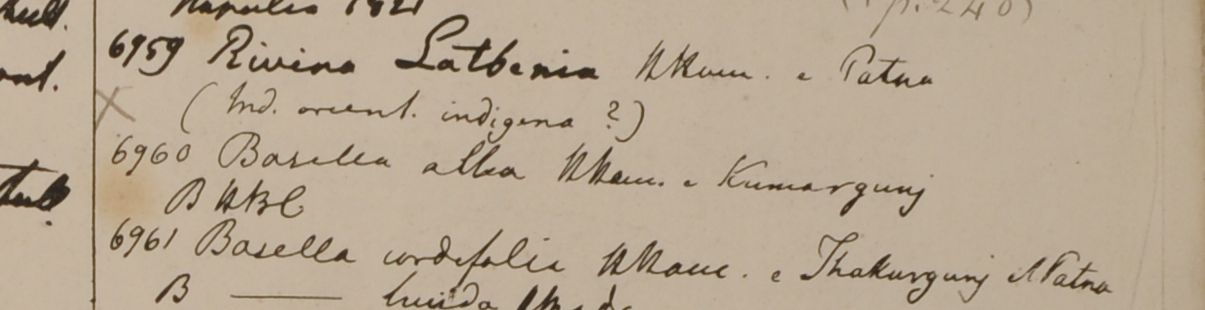 Napalia 1821 (p. 240)
6959 Rivina Latbenia HHam. e Patna
(Ind. orient. indigena ?)
6960 Basella alba HHam. e Kumargunj
B HBC
6961 Basella cordifolia HHam. e Thakurgunj & Patna
B —— lucida